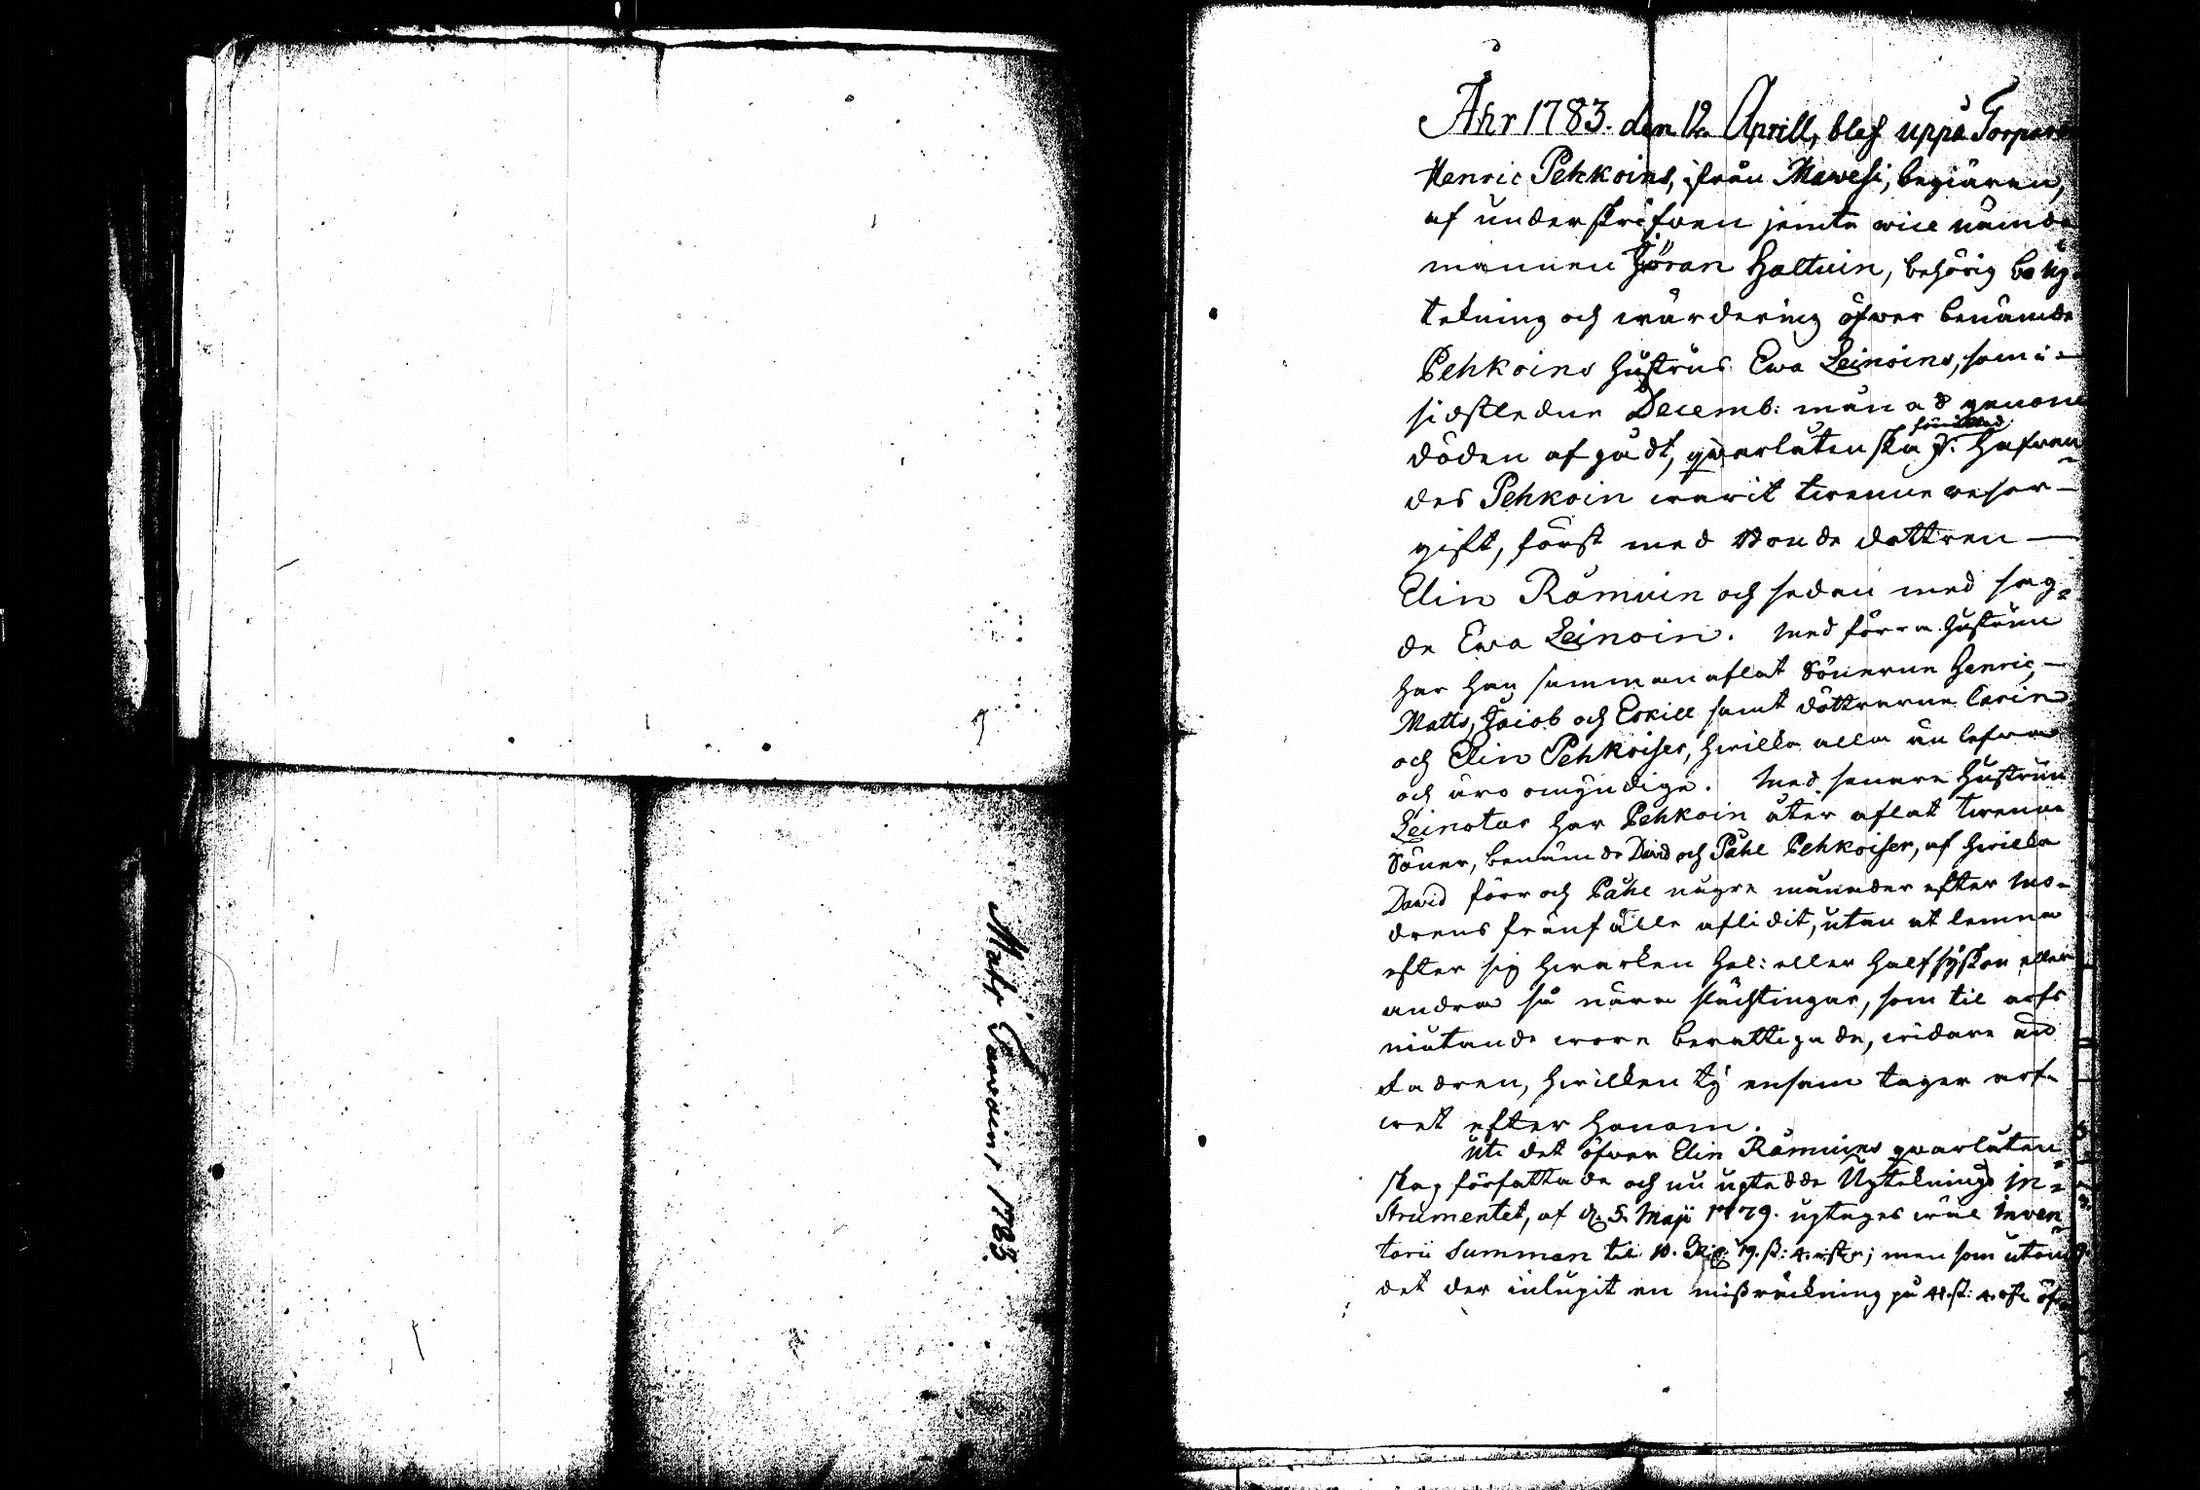 Matts Parvoins 1783.
Åhr 1783. den 12 Aprill, blef uppå Torparen
Henric Pehkoins, ifrån Mawesi, begiäran,
af underskrifven jemte vice nämde
mannen Jöran Haltuin, behörig bo up-
tekning och wärdering öfwer benämde
Pehkoins hustrus Ewa Leinoins, som i
sidstledne Decemb: månad genom
döden afgådt, qwarlåtenskap. Hafvan
des Pehkoin warit twenne resor
gift, först med Bonde dottren
Elin Rämuin och sedan med sag-
de Ewa Leinoin. Med förra hustrun
har han sammanaflat Sönerne Henric,
Matts, Jacob och Eskill samt döttrarne Carin
och Elin Pehkoiser, hwilka alla än lefva
och äro omyndige. Med senare hustrun
Leinotar har Pehkoin åter aflat twenne
Söner, benämde David och Påhl Pehkoiser, af hwilka
David förr och Påhl någre månader efter mo-
drens frånfälle aflidit, utan at lemna
efter sig hwarken hel: eller halfsyskon eller
andra så nära slächtingar, som til arfs
niutande wore berättigade, widare än
fadren, hwilken ty ensam tager arf-
wet efter honom.
Uti det öfver Elin Rämuins qvarlåten
skap författade och nu uptedde Uptecknings in-
strumentet, af d. 5. Maji 1779. uptages wäl Inven
tarii Summan til 10. Rd. 19. ß: 4. rst; men som utom
det der inlupit en missräckning på 41. ß: 4. rst öf